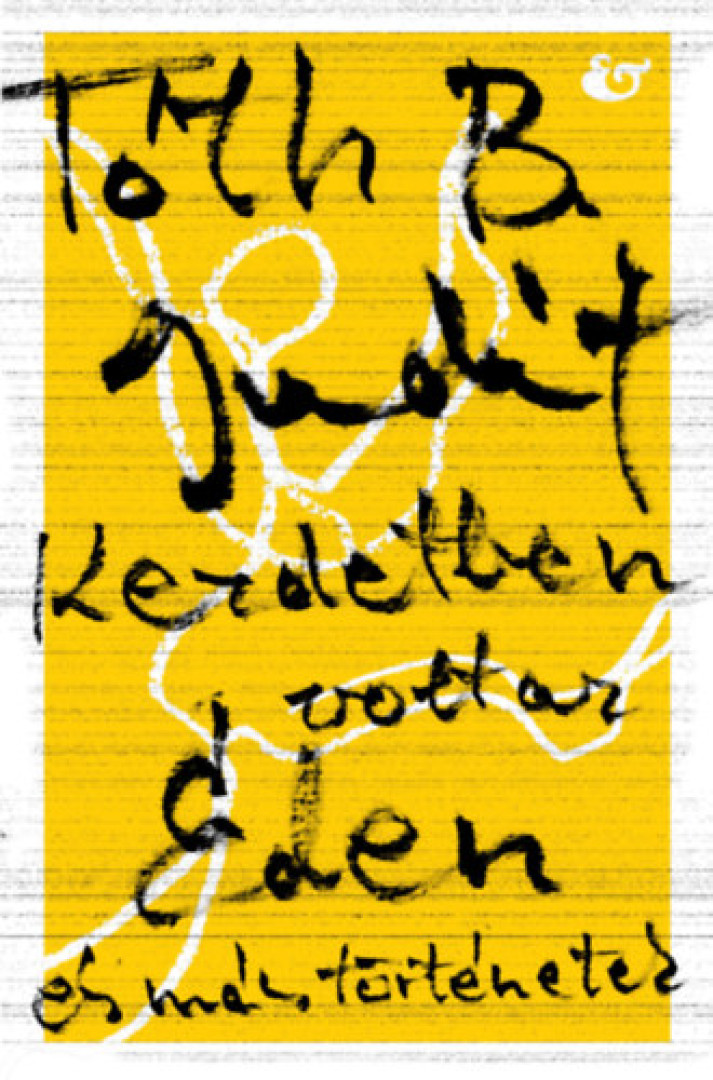 Tóth B. &
Judit
Kezdetben
voltar
Éden
és más történetek